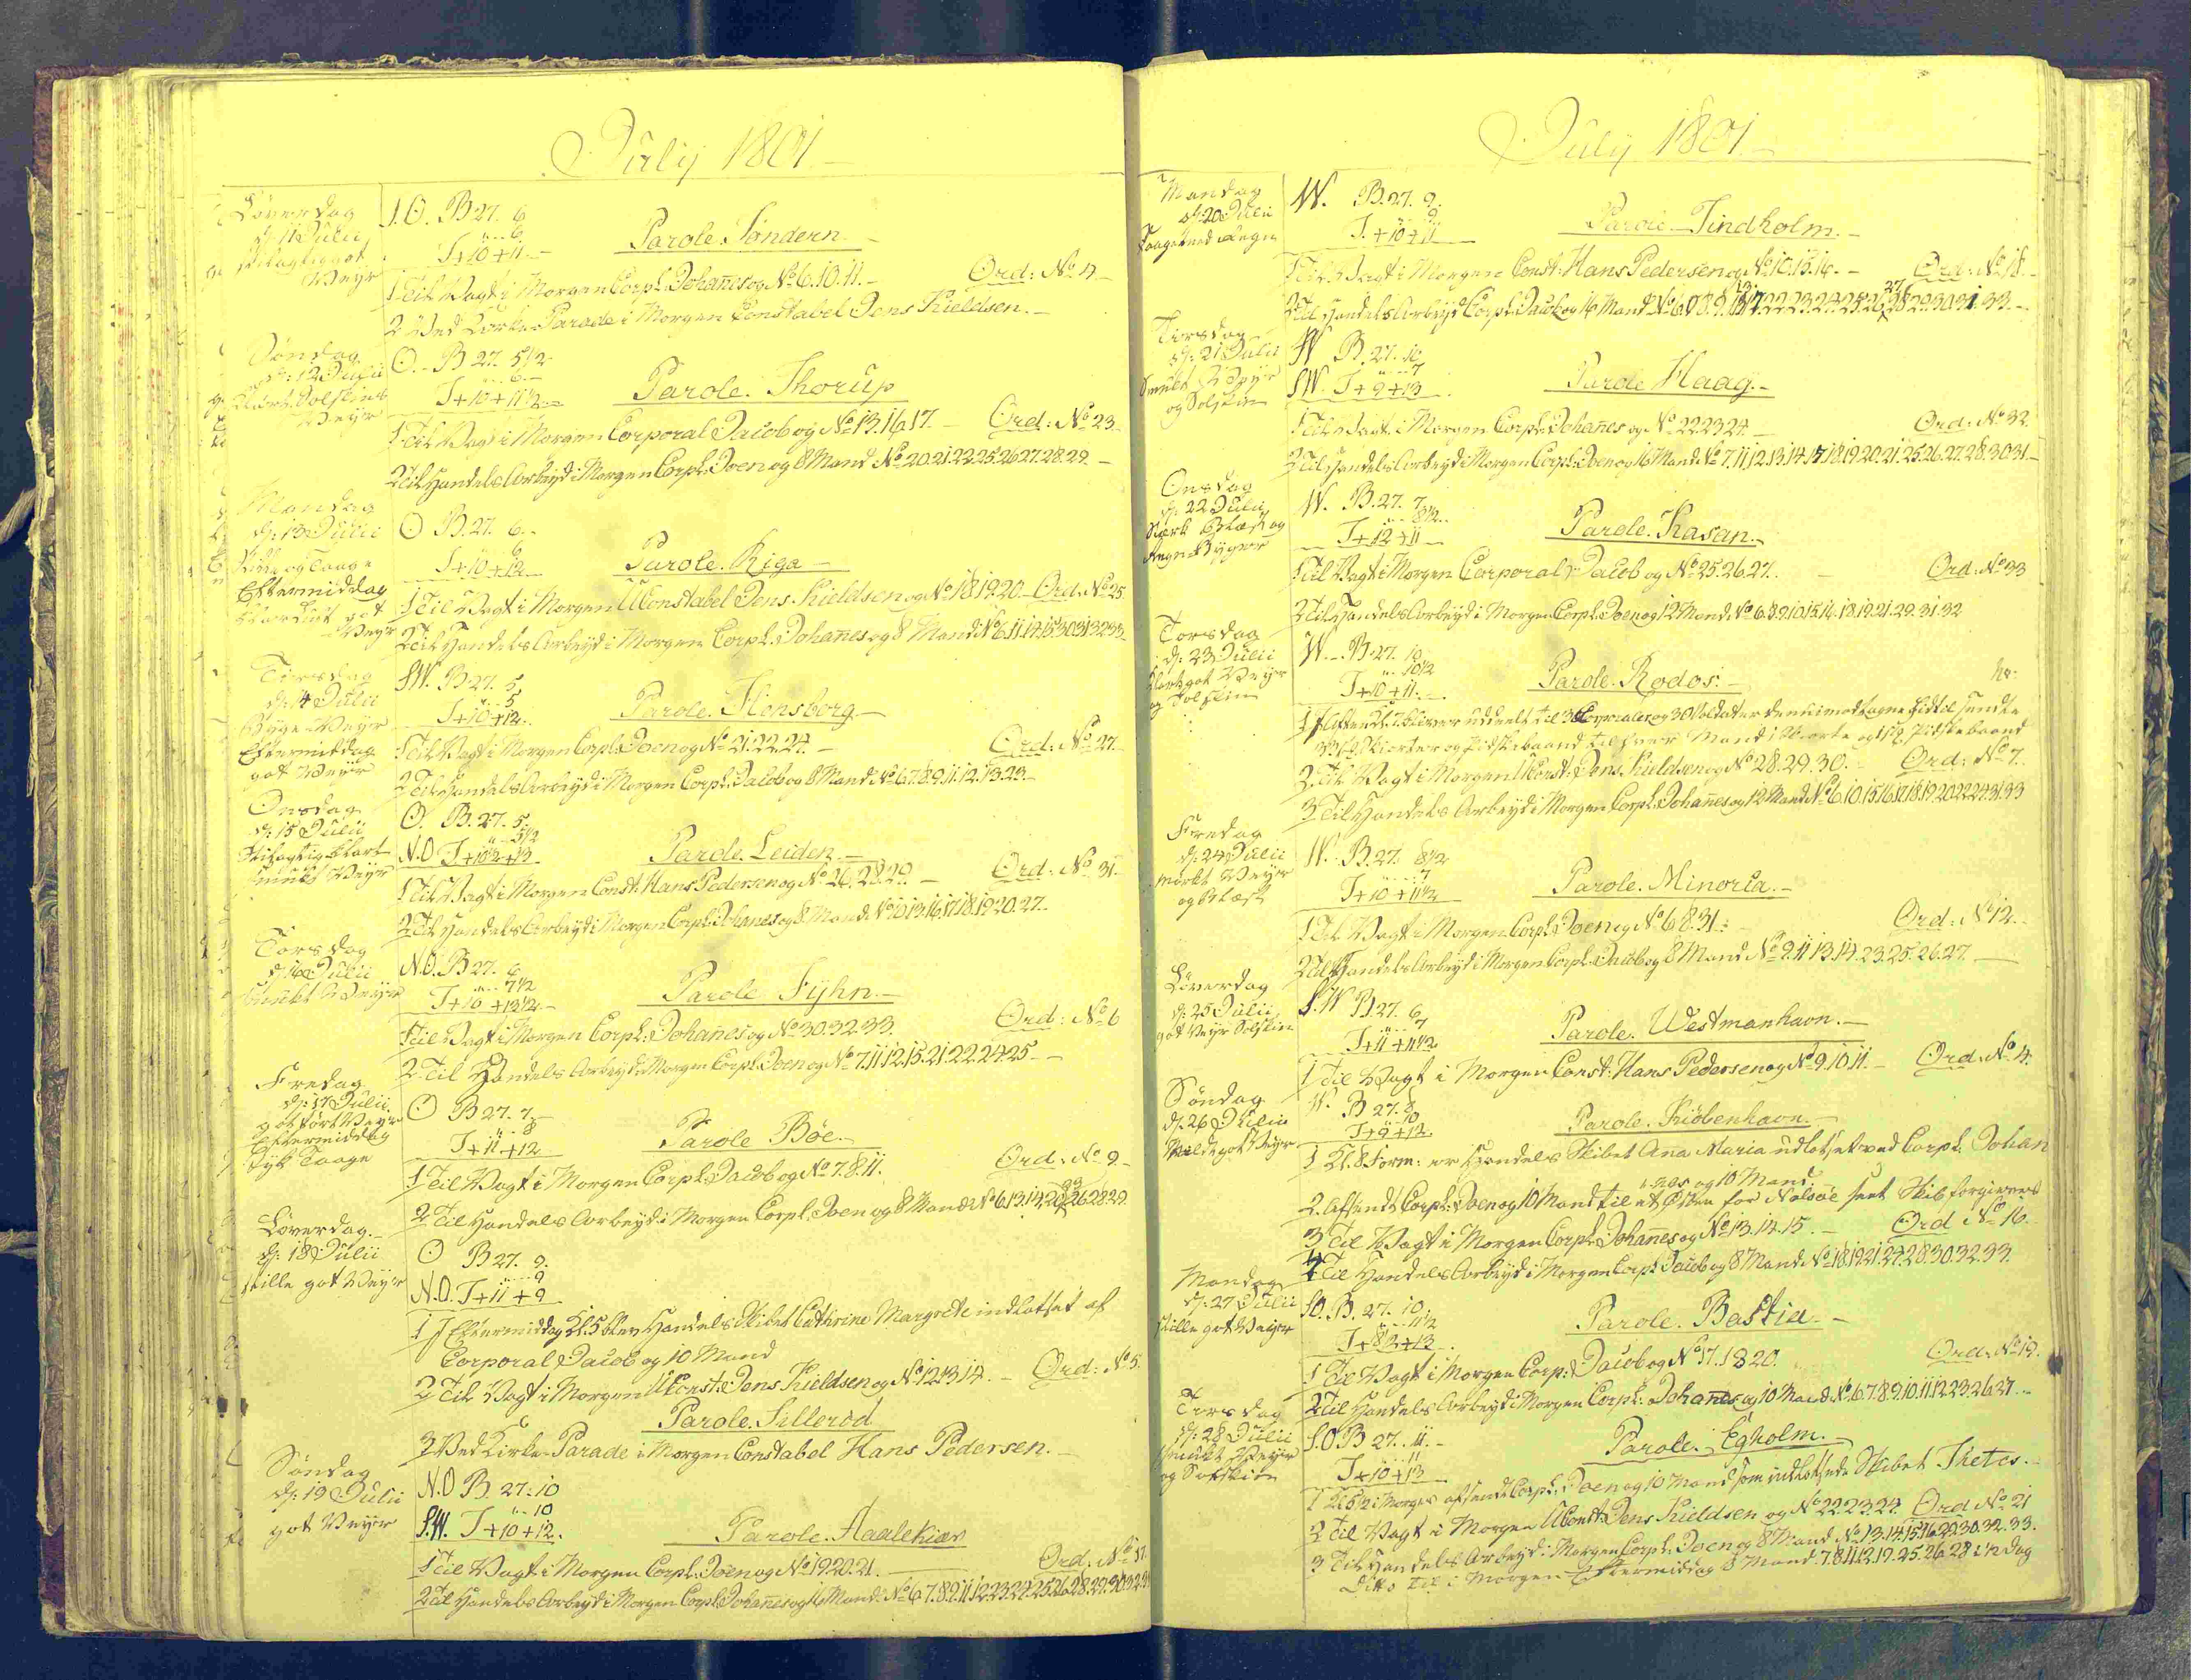 July 1801.
Löverdag
d: 11 Julii
Veyr
S.O. B 27. 6
" .. 6
T+10+11.
Parole. Tøndern.
1 Til Vagt i Morgen Corpl. Johañes og No 6.10.11. Ord: No 4
2 Ved Kirke Parade i Morgen Constabel Jens Kieldsen.
Söndag
d: 12 Julii
Klart Solskins
Veyr
O. B 27. 5 1/2
" .. 6
T+10+11 1/2
Parole. Thorup
1 Til Vagt i Morgen Corporal Jacob og No 13.16.17. Ord: No 23
2 Til Handels Arbeyd i Morgen Corpl: Joen og 8 Mand No 20.21.22.25.26.27.28.29.
Mandag
d: 13 Julii
Stille og Taage
Eftermiddag
klart got
Veyr
O B. 27. 6.
6
T+10+12
Parole. Riga
1 Til Vagt i Morgen UConstabel Jens Kieldsen og No 18.19.20 Ord: No 25
2 Til Handels Arbeyd i Morgen Corpl: Johañes og 8 Mand No 6.11.14.15.30.31.32.33.
Tirsdag
d: 14 Julii
Byge Veyr
Eftermiddag
got Veyr
S.W. B 27. 5
" .. 5
T+10+12.
Parole. Flensborg.
1 Til Vagt i Morgen Corpl: Joen og No 21.22.24. Ord: No 27.
2 Til Handels Arbeyd i Morgen Corpl: Jacob og 8 Mand No 6.7.8.9.11.12.13.23.
Onsdag
d: 15 Julii
Skilagtig klart
smukt Veyr
O. B. 27. 5.
" .. 5 1/2
N.O T+10 1/2+13
Parole. Leiden.
1 Til Vagt i Morgen Const: Hans Pedersen og No 26.28.29. Ord: No 31.
2 Til Handels Arbeyd i Morgen Corpl: Johañes og 8 Mand No 10.13.16.17.18.19.20.27.
Torsdag
d: 16 Julii
Smukt Veyr
N.O. B 27. 6
" .. 7 1/2
T+10 +13 1/2
Parole Fyhn.
1 Til Vagt i Morgen Corpl: Johañes og No 30.32.33. Ord: No 6
2 Til Handels Arbeyd i Morgen Corpl: Joen og No 7.11.12.15.21.22.24.25
Fredag
d: 17 Julii
got tört Veyr
Eftermiddag
Tyk Taage
O B 27. 7.
" .. 8
T+11+12
Parole Böe.
1 Til Vagt i Morgen Corpl: Jacob og No 7.8.11. Ord: No 9
2 Til Handels Arbeyd i Morgen Corpl: Joen og 8 Mand No 6.13.14.20.23.26.28.29
Löverdag.
d: 18 Julii
stille got Veyr
O B 27. 9.
" .. 9
N.O. T+11+9
1 I Eftermiddag Kl. 5 blev Handels Skibet Cathrine Margrete indlotset af
Corporal Jacob og 10 Mand
2 Til Vagt i Morgen UConst: Jens Kieldsen og No 12.13.14. Ord: No 5.
Parole. Selleröd
3 Ved Kirke Parade i Morgen Constabel Hans Pedersen.
Söndag
d: 19 Julii
got Veyr
N.O B. 27: 10
" .. 10
S.W. T+10+12.
Parole. Aalekiær
1 Til Vagt i Morgen Corpl: Joen og No 19.20.21. Ord: No 17
2 Til Handels Arbeyd i Morgen Corpl: Johañes og 16 Mand. No 6.7.8.9.11.12.23.24.25.26.28.29.30.32.33
July 1801.
Mandag
d: 20 Julii
Taage med Regn
W. B. 27. 9.
" .. 9
T.+10+11
Parole Tindholm.
1 Til Vagt i Morgen Const: Hans Pedersen og No 10.15.16. Ord: No 18.
2 Til Handels Arbeyd Corpl: Jacob og 16 Mand No
Tirsdag
d: 21 Julii
Smukt Veyr
og Solskin
W B. 27. 10
" .. 7
S.W. T+9+13
Parole Haag.
1 Til Vagt i Morgen Corpl: Johañes og No 22.23.24. Ord: No 32.
2 Til Handels Arbeyd i Morgen Corpl: Joen og 16 Mand No 7.11.12.13.14.15.17.18.19.20.21.25.26.27.28.30.31.
Onsdag
d: 22 Julii
Stærk Blæst og
Regn Bygner
W. B. 27. 7
" .. 8 1/2
T+12+11
Parole. Kasan.
1 Til Vagt i Morgen Corporal Jacob og No 25.26.27. Ord: No 33
2 Til Handels Arbeyd i Morgen Corpl: Joen og 12 Mand. No 6.8.9.10.15.16.18.19.21.29.31.32
Torsdag
d: 23 Julii
Klart got Veyr
og Solskin
W. B. 27. 10
" .. 10 1/2
T+10+11.
Parole. Rodos.
1 I Aftendt: bliver uddeelt til 3 Corporaler og 30 Soldater
Skiorter og Pidskebaand til hver Mand 1 Skiorte og 1 Pidskebaand
2 Til Vagt i Morgen UConst: Jens Kieldsen og No 28.29.30. Ord: No 7.
3 Til Handels Arbeyd i Morgen Corpl: Johañes og 12 Mand No 6.10.15.16.17.18.19.20.22.24.31.33
Fredag
d: 24 Julii
mörkt Veyr
og Blæst
W. B. 27. 8 1/2
" .. 7
T+10+11 1/2
Parole. Minorca.
1 Til Vagt i Morgen Corpl: Joen og No 6.8.31. Ord: No 12.
2 Til Handels Arbeyd i Morgen Corpl: Jacob og 8 Mand No 9.11.13.14.23.25.26.27.
Löverdag
d: 25 Julii
got Veyr Solskin
S.W B 27. 6
" .. 7
T+11+11 1/2
Parole. Westmanhavn.
1 Til Vagt i Morgen Const: Hans Pedersen og No 9.10.11. Ord: No 4.
Söndag
d: 26 Julii
Mildt got Veyr
W. B 27. 8
" .. 10
T+9+12.
Parole. Kiöbenhavn.
1 Kl. 8 Form: er Handels Skibet Ana Maria udlotset ved Corpl: Johan
nes og 10 Mand.
2. Afsendt Corpl: Joen og 10 Mand til et Østen for Nolsøe seet Skib forgieves
3 Til Vagt i Morgen Corpl: Johañes og No 13.14.15. Ord No 16.
4 Til Handels Arbeyd i Morgen Corpl: Jacob og 8 Mand No 18.19.21.24.28.30.32.33.
Mandag
d: 27 Julii
stille got Veyr
S.O. B. 27. 10
" .. 11 1/2
T+8 1/2+13
Parole. Bastia.
1 Til Vagt i Morgen Corp: Jacob og No 17.18.20. Ord: No 19.
2 Til Handels Arbeyd i Morgen Corpl: Johañes og 10 Mand No 6.7.8.9.10.11.12.23.26.27.
Tirsdag
d: 28 Julii
Smukt Veyr
og Solskin
S.O B 27. 11.
" .. 11
T+10+13
Parole. Egholm.
1 Kl 6 1/2 i Morges afsendt Corpl: Joen og 10 Mand som indlotsede Skibet Thetes.
2 Til Vagt i Morgen UConst: Jens Kieldsen og No 22.23.24. Ord No 21
3 Til Handels Arbeyd i Morgen Corpl: Joen og 8 Mand No 13.14.15.16.29.30.32.33.
Ditto til i Morgen Eftermiddag 8 Mand 7.8.11.12.19.25.26.28 1/2 Dag